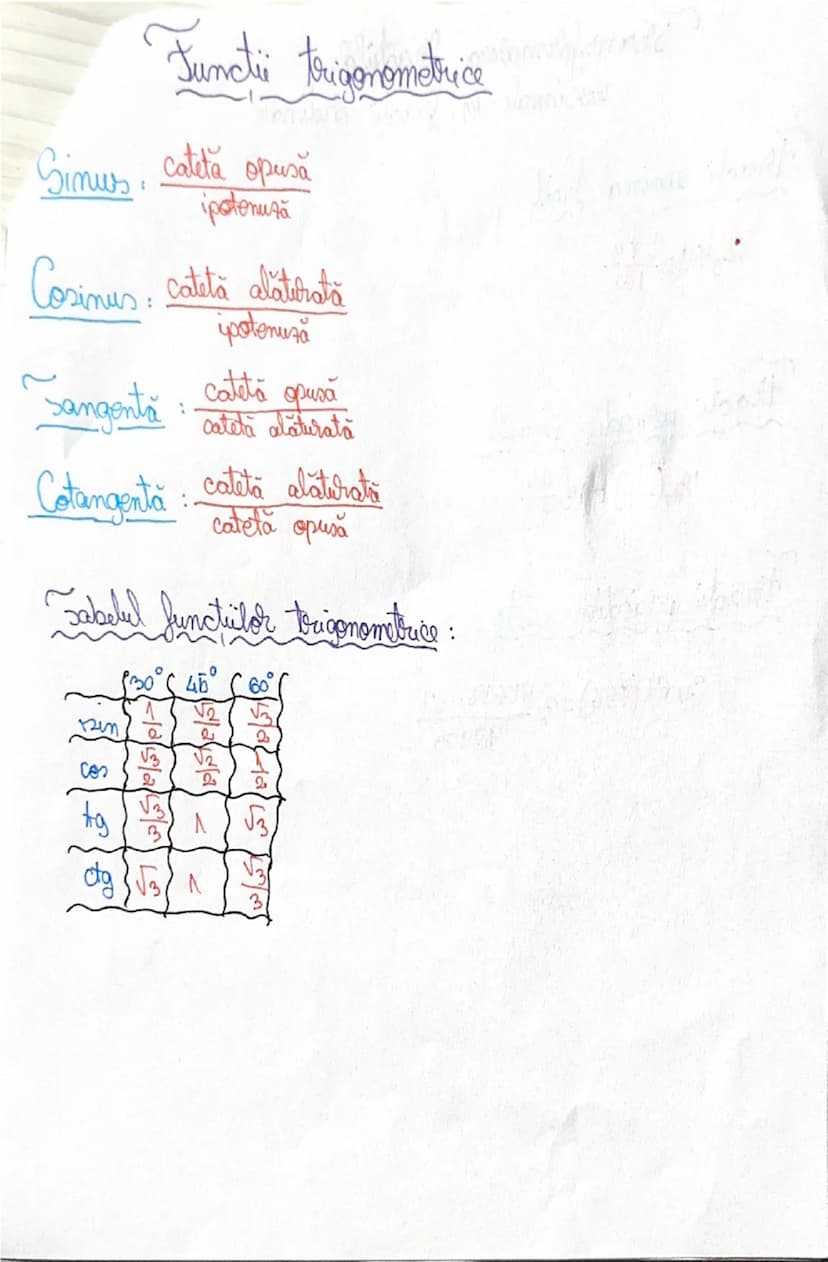 Funcții trigonometrice
Sinus: catetă opusă
ipotenuză
Cosinus: catetă alăturată
ipotenuză
Tangentă: catetă opusă
catetă alăturată
Cotangentă: catetă alăturată
catetă opusă
Tabelul funcțiilor trigonometrice:
30° 45° 60°
sin 1/2 √2/2 √3/2
cos √3/2 √2/2 1/2
tg √3/3 1 √3
ctg √3 1 √3/3